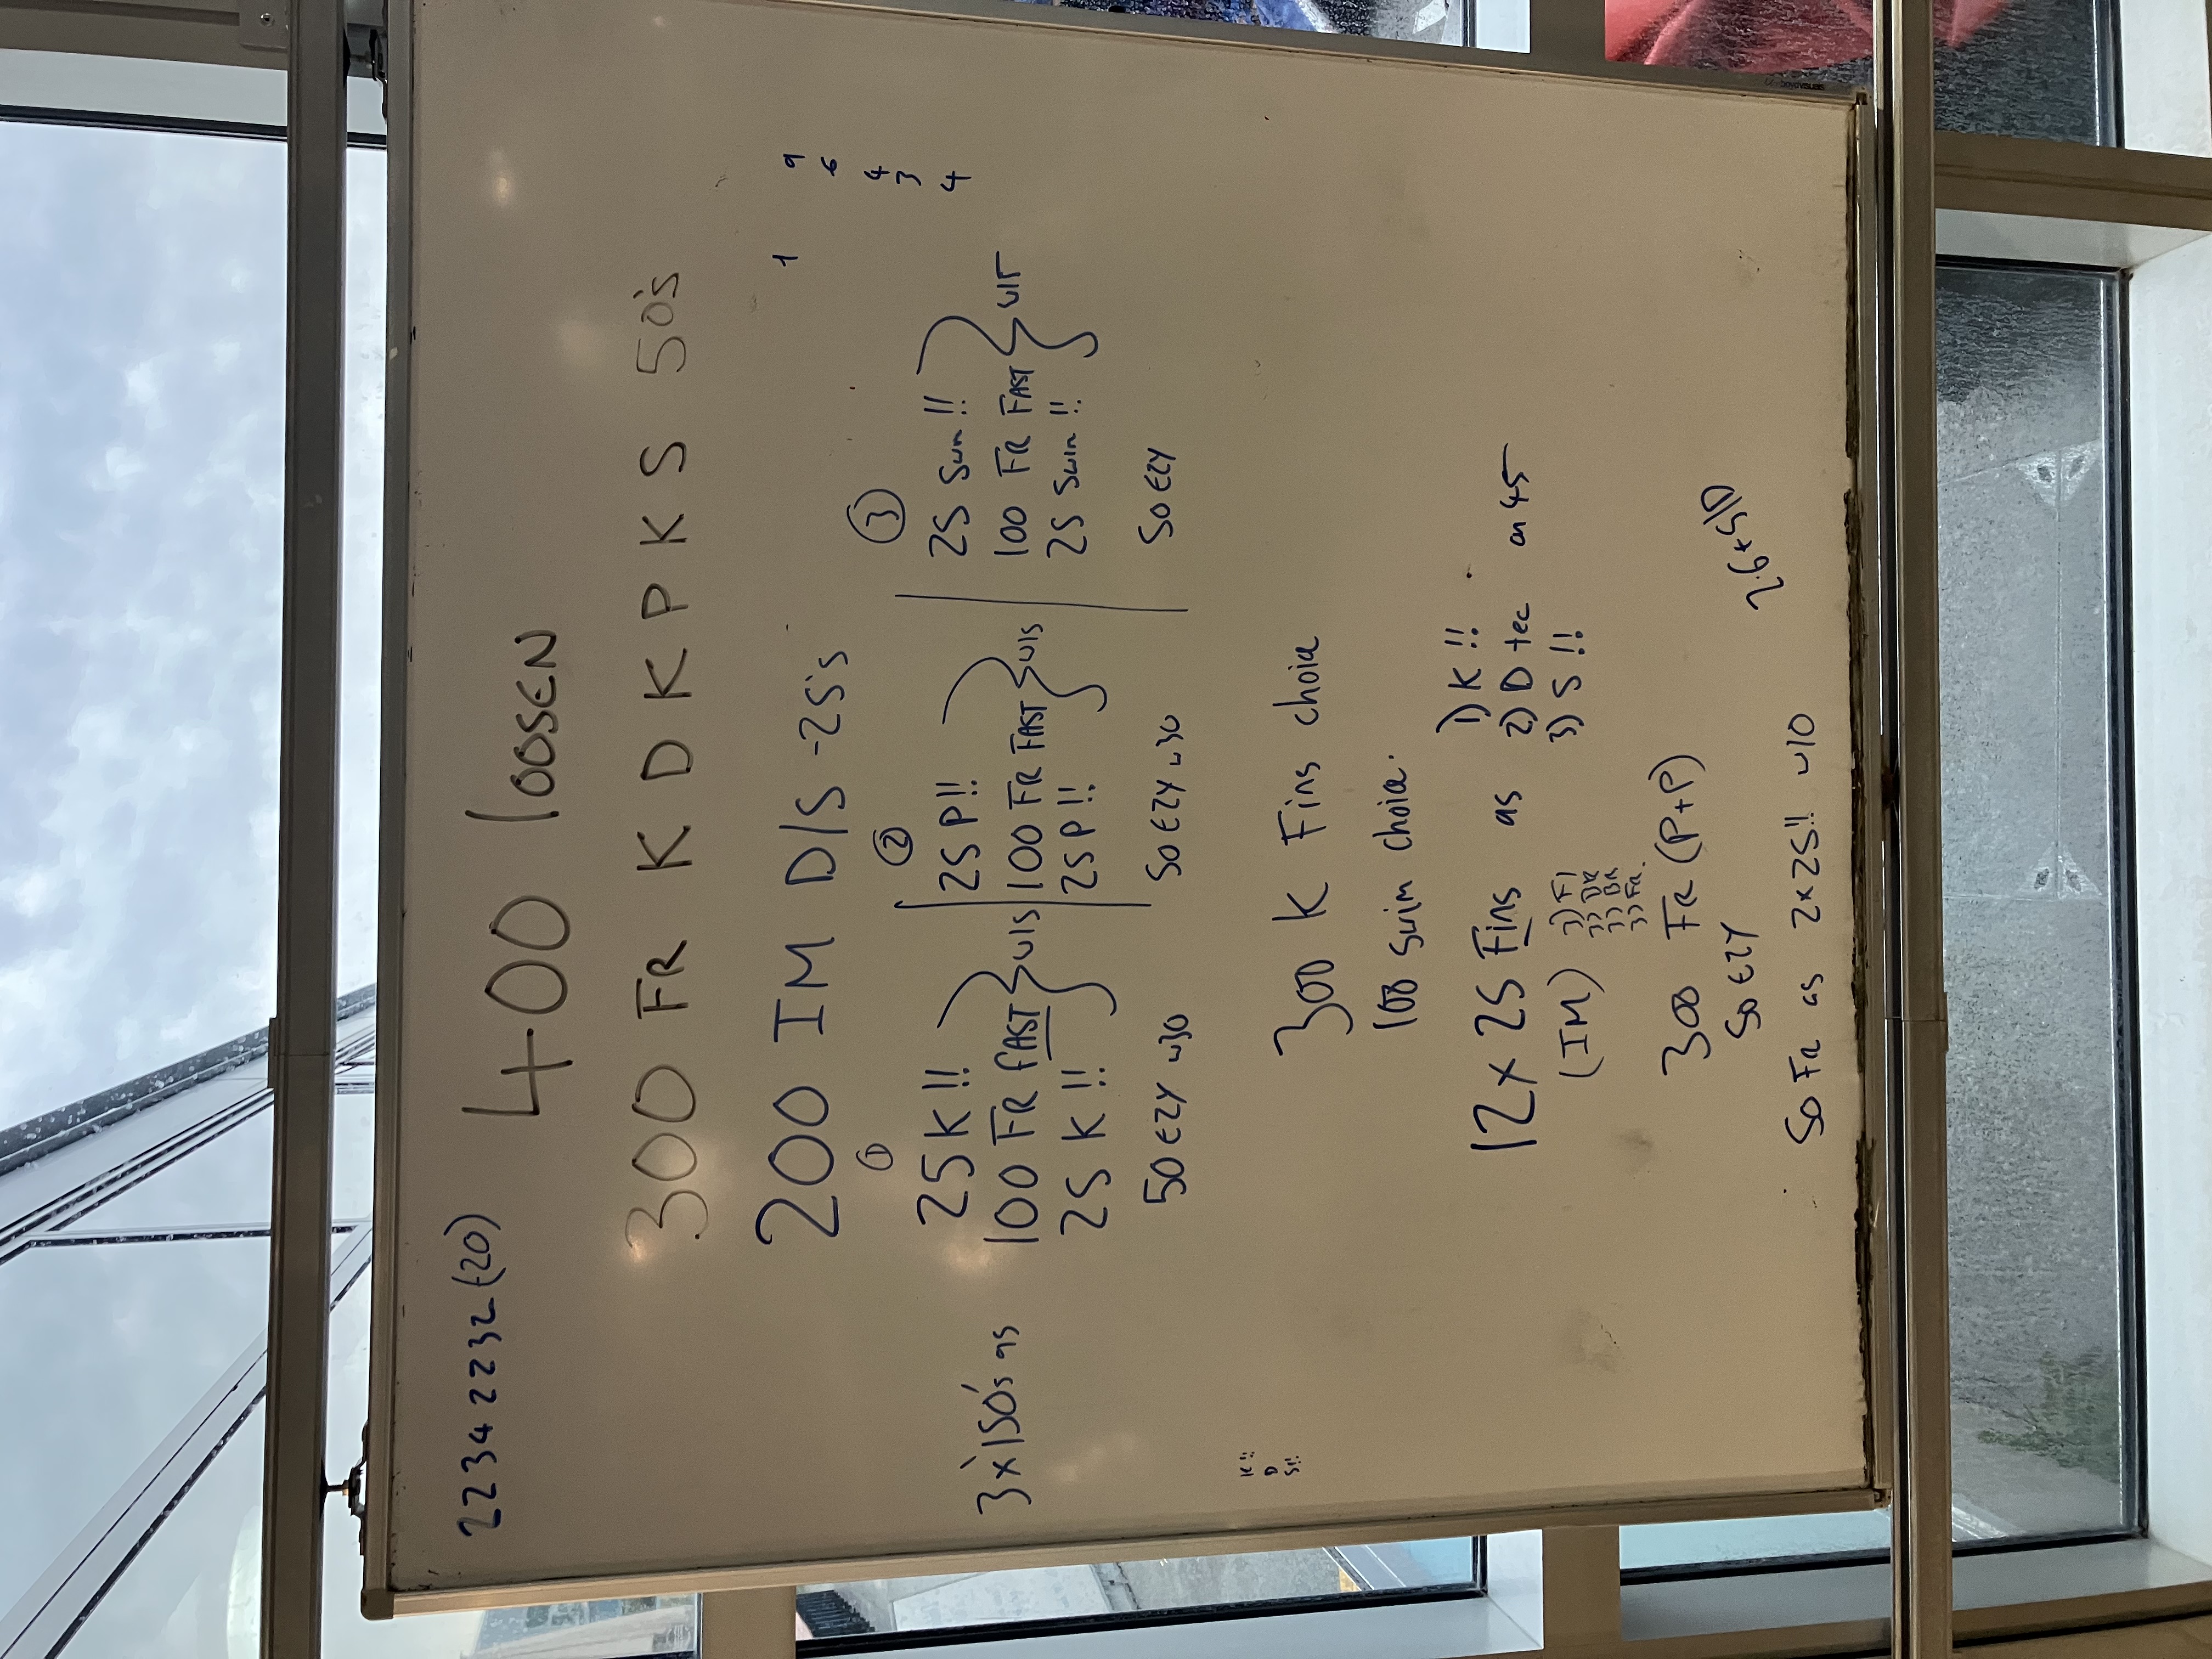 22342232 (20)
400 loosEN
300 FR K D K D K P K S 50's
200 IM D/S - 25's
1
9
6
4
3
4
3 x 150's as
①
25 K !!
100 FR FAST } w15
25 K !!
50 EZY w30
②
25 P !!
100 FR FAST } w15
25 P !!
50 EZY w30
③
25 Swim !!
100 FR FAST } w15
25 Swim !!
50 EZY
K !!
D
S !!
300 K Fins choice
100 swim choice.
12 x 25 Fins as 1) K !!
2) D tec on 45
3) S !!
(IM) 3) Fl
3) BK
3) BR
3) FR.
300 FR (P+P)
50 EZY
50 FR as 2x25 !! w10
2.6 + S/D